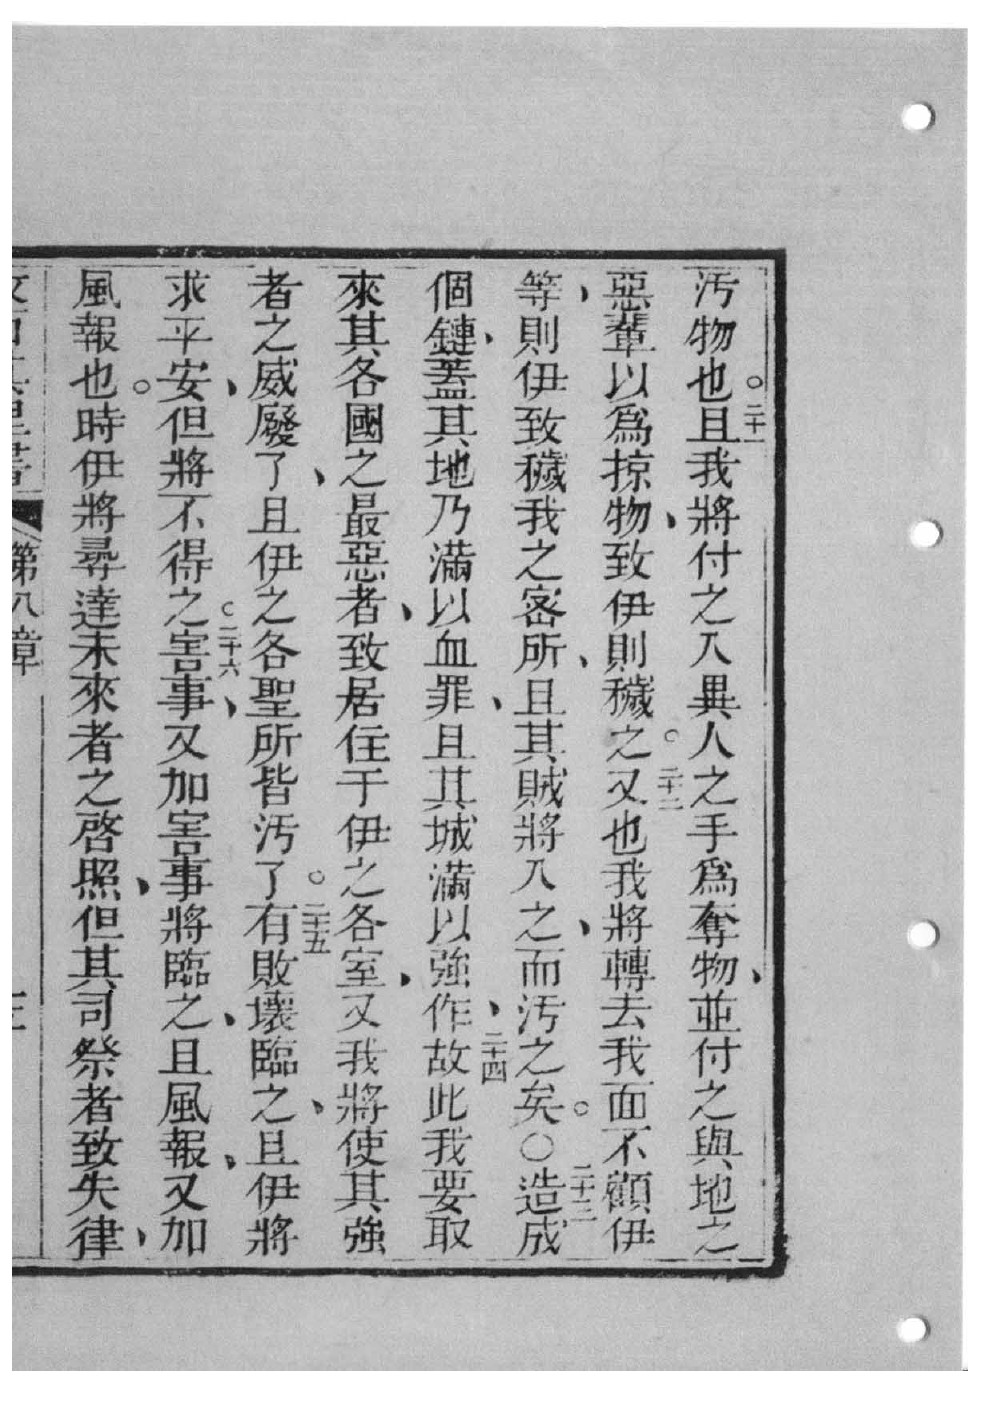 汚物也。二十一且我將付之入異人之手爲奪物、並付之與地之
惡輩以爲掠物、致伊則穢之。二十二又也我將轉去我面不顧伊
等、則伊致穢我之密所、且其賊將入之、而汚之矣。○二十三造成
個鏈、蓋其地乃滿以血罪、且其城滿以強作、二十四故此我要取
來其各國之最惡者、致居住于伊之各室、又我將使其強
者之威廢了、且伊之各聖所皆汚了。二十五有敗壞臨之、且伊將
求平安、但將不得之。二十六害事、又加害事將臨之、且風報、又加
風報也。時伊將尋達未來者之啓照、但其司祭者致失律、
第八章